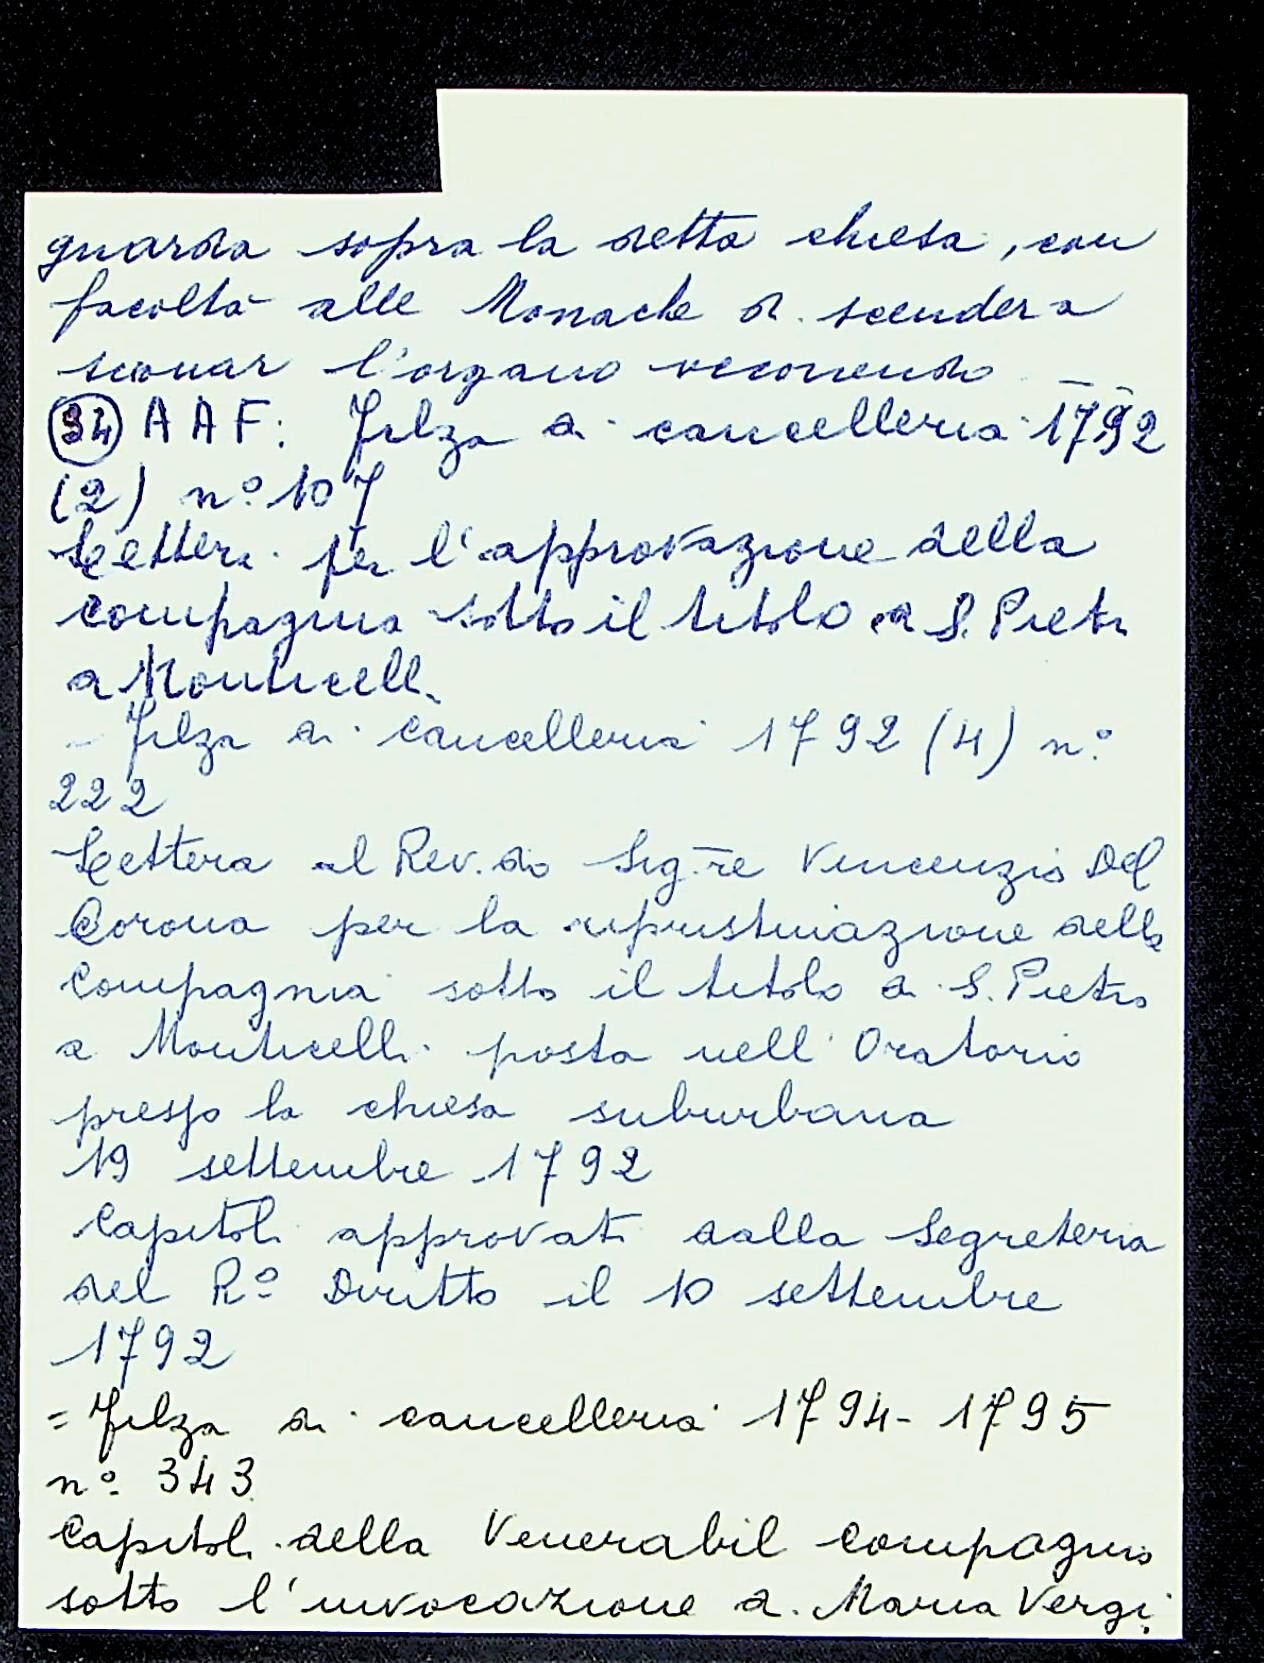 guarda sopra la detta chiesa, con
facoltà alle Monache di scender a
suonar l'organo occorrendo
34 AAF: Filza di cancelleria 1792
(2) n.º 107
Lettera per l'approvazione della
compagnia sotto il titolo di S. Pietro
a Monticelli
- Filza di cancelleria 1792 (4) n.º
222
Lettera al Rev.do Sig.re Vincenzio Del
Corona per la ripristinazione della
Compagnia sotto il titolo di S. Pietro
a Monticelli posta nell'Oratorio
presso la chiesa suburbana
19 settembre 1792
Capitoli approvati dalla Segreteria
del Rº Diritto il 10 settembre
1792
= Filza di cancelleria 1794-1795
nº. 343
Capitoli della Venerabil compagnia
sotto l'invocazione di Maria Vergi